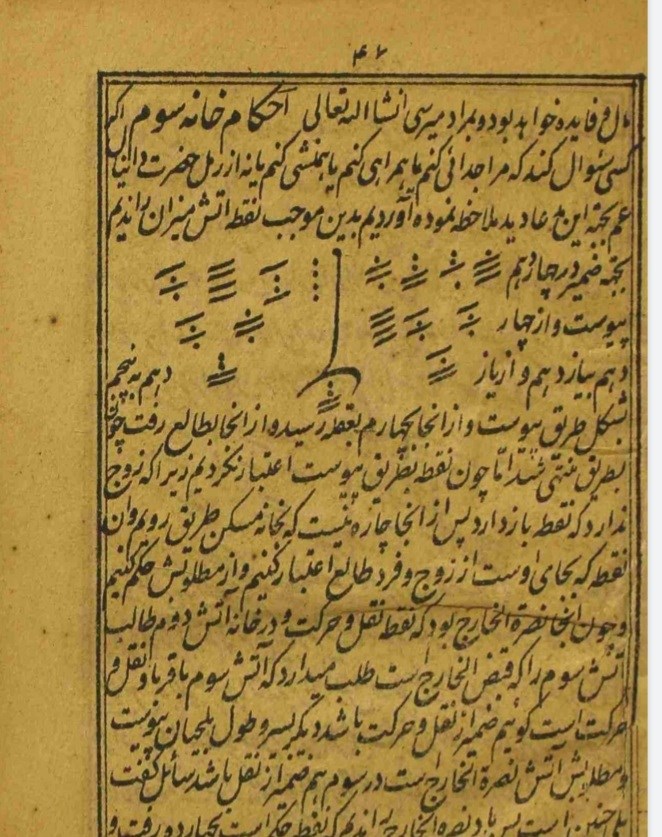 ۴۷
مال و فایده خواهد بود و بمراد میرسی انشاالله تعالی احکام خانه سوم اگر
کسی سئوال کند که مراجدائی کنم یا همراهی کنم یا همنشی کنم یا نه از رمل حضرت دانیا
عم بجهة این عادید ملاحظه نموده آوردیم بدین موجب نقطه اتش میزان راندیم
بجهة ضمیر در چهاردهم
پیوست و از چهار
دهم بیازدهم و از یاز دهم به پنجم
شکل طریق پیوست و از انجا بچهارم بنقطه رسیده و از انجا بطالع رفت چون
بطریق منتهی شد اما چون نقطه بطریق پیوست اعتبار نکردیم زیرا که زوج
ندارد که نقطه باز دارد پس از انجا چاره نیست که بخانه مسکن طریق رویم وان
نقطه که بجای اوست از زوج و فرد طالع اعتبار کنیم و از مطلوبش حکم کنیم
و چون انجا نصرة الخارج بود که نقطه نقل و حرکت و در خانه آتش دوم طالب
آتش سوم را که قبض الخارج است طلب میدارد که آتش سوم باقر باد نقل و
حرکت است گوئیم ضمیر از نقل و حرکت باشد دیگر بسر و طول بلحیان پیوست
و مطلوبش آتش نصرة الخارج است در سوم هم ضمیر از نقل باشد سائل گفت
بلی چنین است پس باد نصرة الخارج راندیم که نقطه حکم است بچهارده رفت و